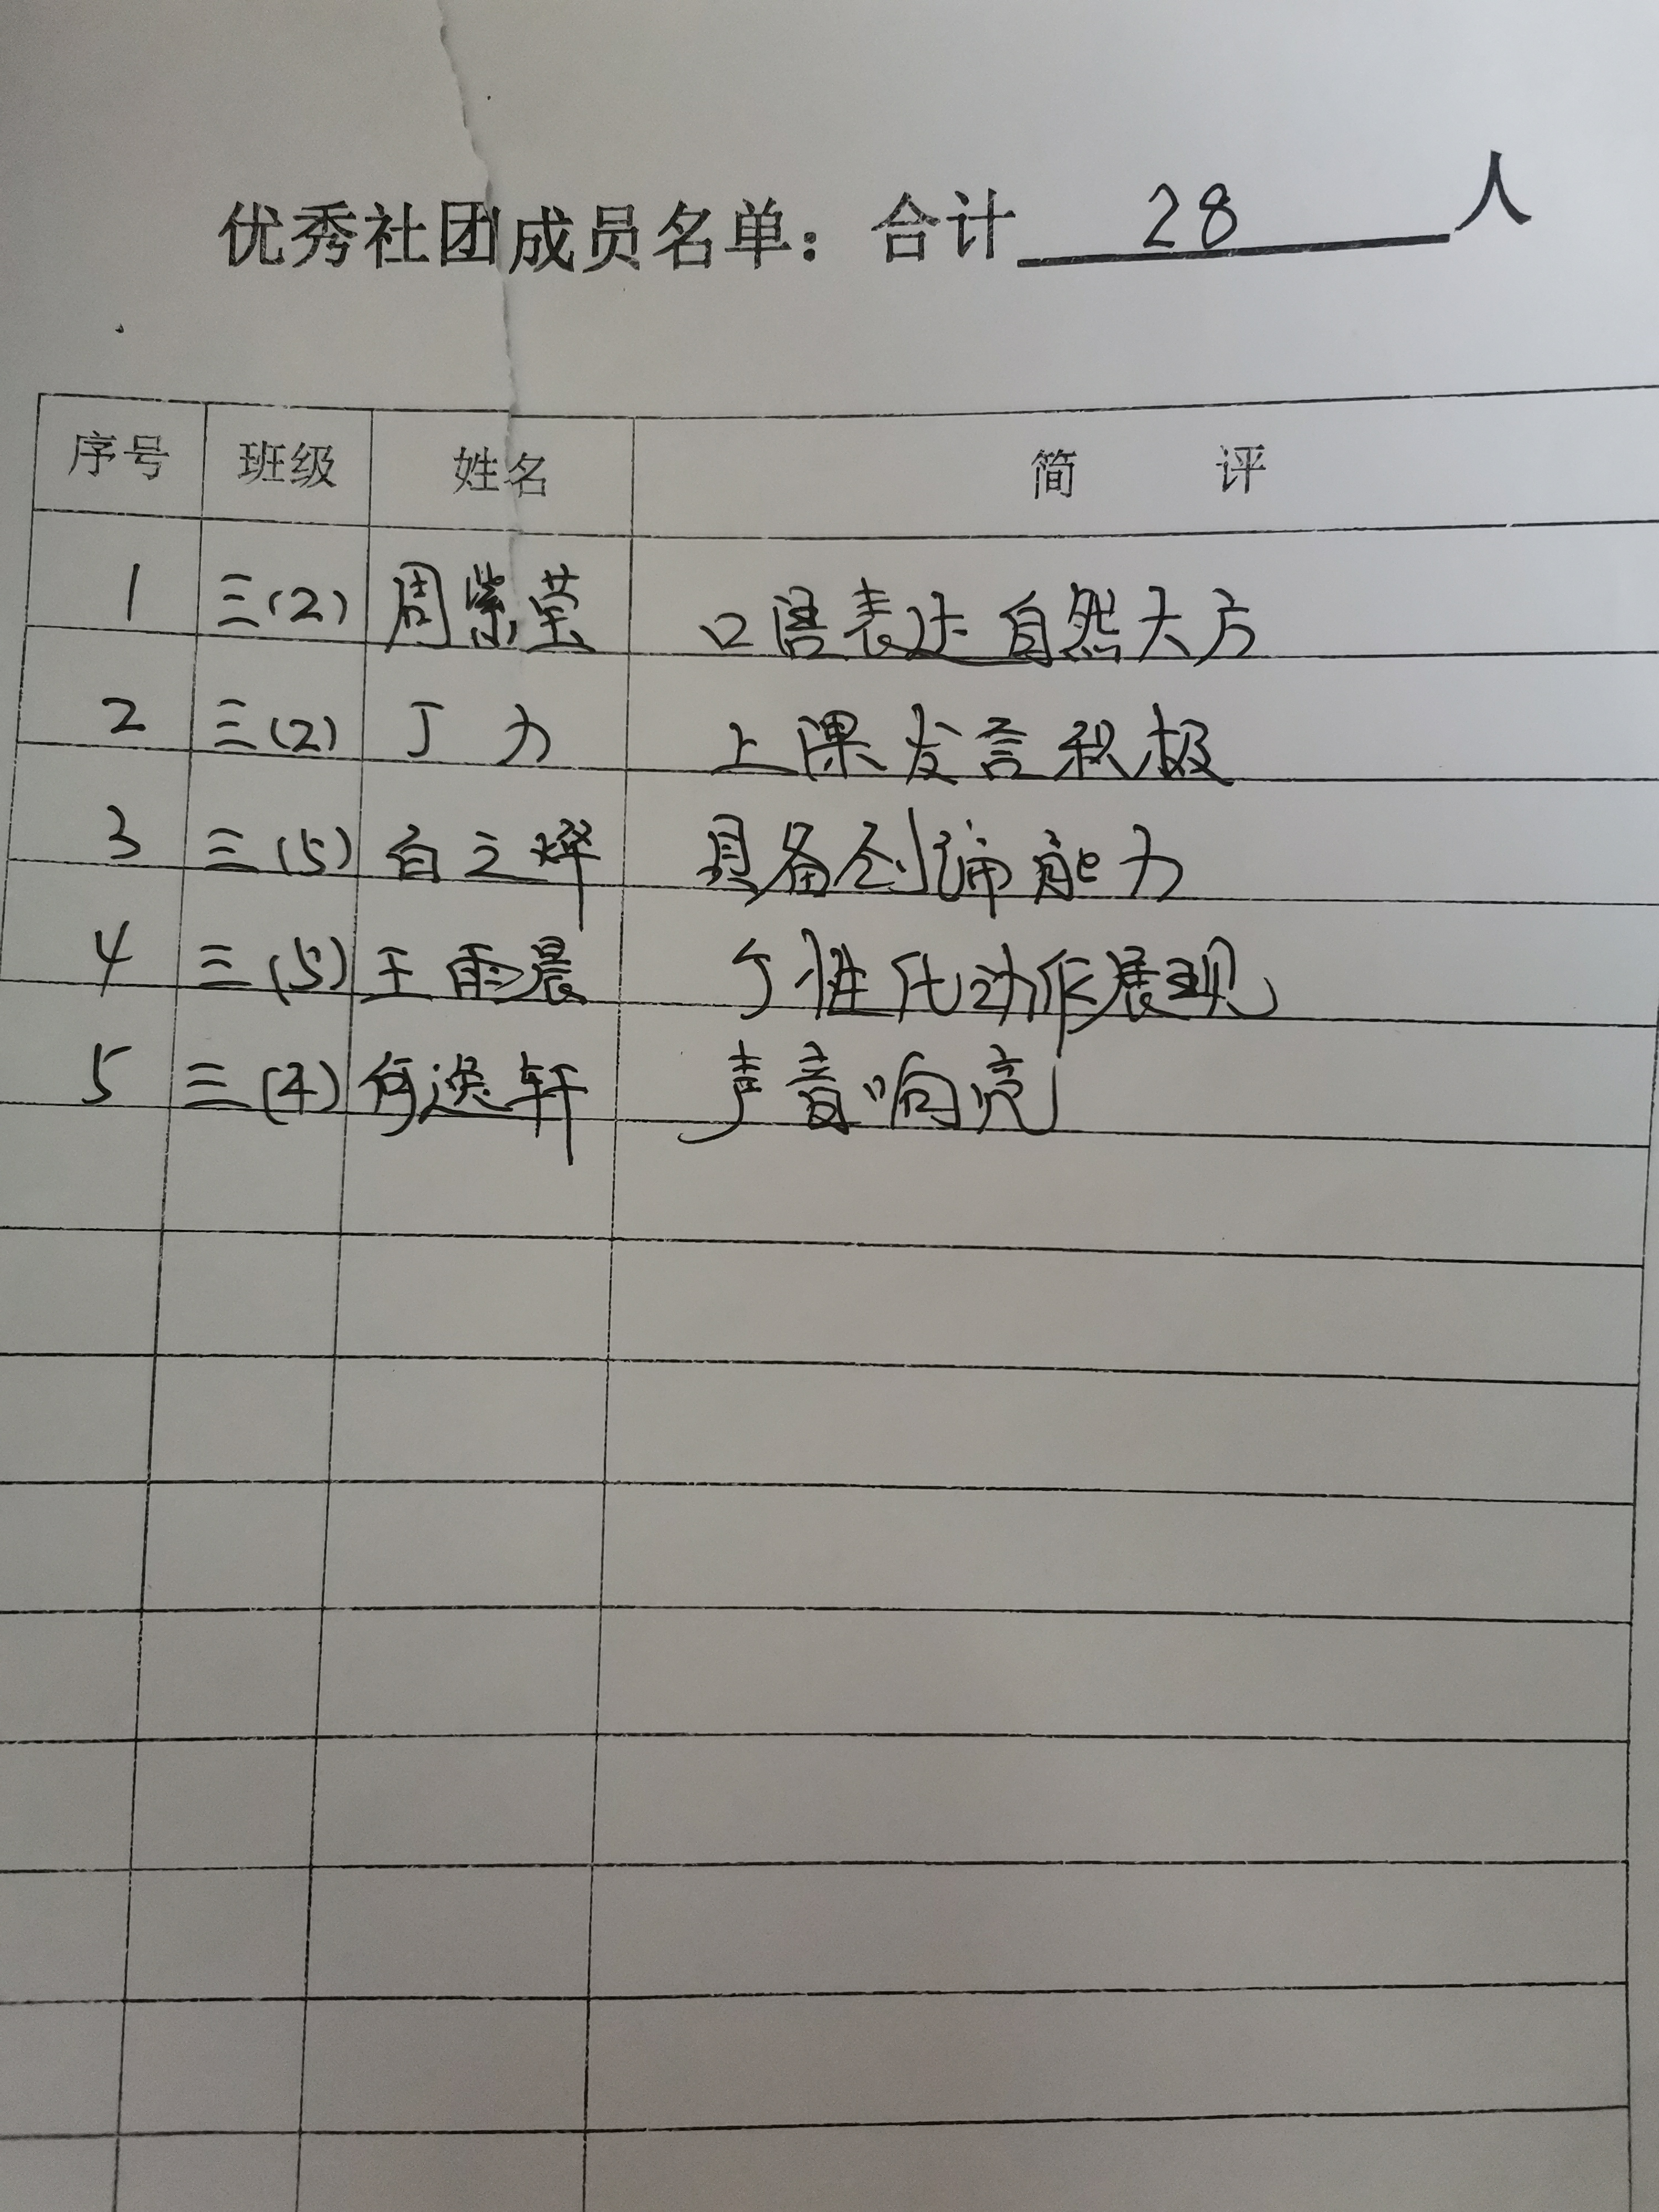 优秀社团成员名单：合计 28 人
序号 班级 姓名 简 评
1 三(2) 周紫莹 口语表达自然大方
2 三(2) 丁力 上课发言积极
3 三(5) 白之烨 具备创编能力
4 三(5) 王雨晨 个性化动作展现
5 三(4) 何逸轩 声音响亮